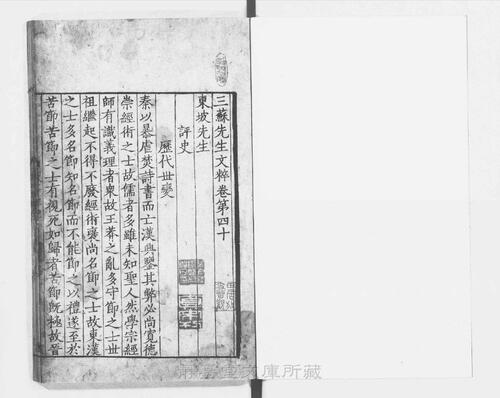 三蘇先生文粹卷第四十
東坡先生
評史
歷代世變
秦以暴虐焚詩書而亡漢興鑒其弊必尚寬德
崇經術之士故儒者多雖未知聖人然學宗經
師有識義理者衆故王莽之亂多守節之士世
祖繼起不得不廢經術褒尚名節之士故東漢
之士多名節知名節而不能節之以禮遂至於
苦節苦節之士有視死如歸者苦節既極故晉
文庫所藏